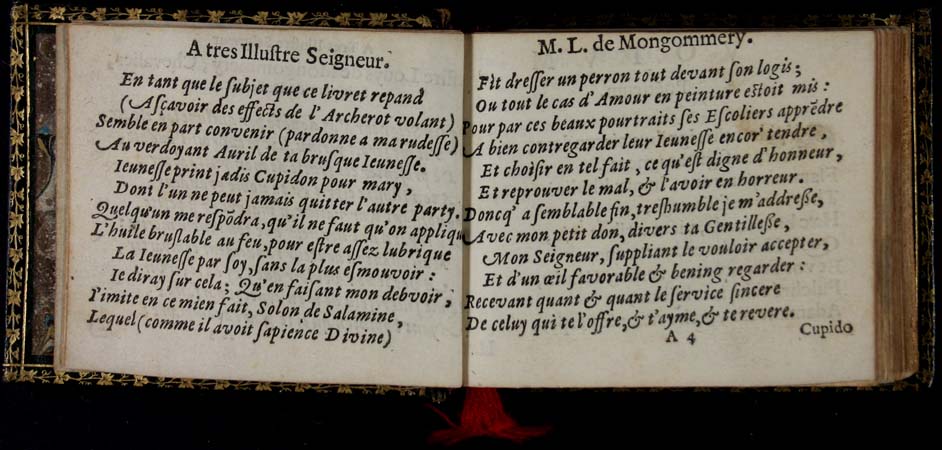 A tres Illuſtre Seigneur.
En tant que le ſubjet que ce livret repand
(Aſçavoir des effects de l'Archerot volant)
Semble en part convenir (pardonne a ma rudeſſe)
Au verdoyant Auril de ta bruſque Ieuneſſe.
Ieuneſſe print jadis Cupidon pour mary,
Dont l'un ne peut jamais quitter l'autre party.
Quelqu'un me reſpõdra, qu'il ne faut qu'on appliqu
L'huile bruſlable au feu, pour eſtre aſſez lubrique
La Ieuneſſe par ſoy, ſans la plus eſmouvoir:
Ie diray ſur cela; Qu'en faiſant mon debvoir,
I'imite en ce mien fait, Solon de Salamine,
Lequel (comme il avoit ſapience Divine)
M. L. de Mongommery.
Fit dreſſer un perron tout devant ſon logis;
Ou tout le cas d'Amour en peinture eſtoit mis:
Pour par ces beaux pourtraits ſes Eſcoliers apprẽdre
A bien contregarder leur Ieuneſſe encor' tendre,
Et choiſir en tel fait, ce qu'eſt digne d'honneur,
Et reprouver le mal, & l'avoir en horreur.
Doncq' a ſemblable fin, treſhumble je m'addreſſe,
Avec mon petit don, divers ta Gentilleſſe,
Mon Seigneur, ſuppliant le vouloir accepter,
Et d'un œil favorable & bening regarder:
Recevant quant & quant le ſervice ſincere
De celuy qui te l'offre, & t'ayme, & te revere.
A 4
Cupido